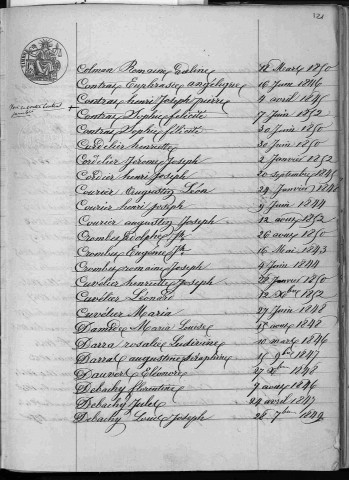 121
Colman Romaine Edeline 12 Mars 1850
Contras Euphrasie angélique 16 Juin 1846
Contras henri Joseph pierre 4 avril 1845
Contras Sophie félicité 7 Juin 1852
Contras Sophie félicité 30 Juin 1850
Cordelier henriette 30 Juin 1850
Cordelier Jérome Joseph 2 Janvier 1852
Cordier henri Joseph 20 septembre 1845
Courier Augustin Léon 24 Janvier 1848
Courier henri Joseph 9 Juin 1844
Courier augustin Joseph 12 août 1852
Crombez Adolphe Jh 26 août 1850
Crombez Eugénie Jh 16 Mai 1843
Crombez romain Joseph 4 Juin 1844
Cuvelier henriette Joseph Janvier 1850
Cuvelier Léonore 12 Xbre 1852
Cuvelier Maria 27 Juin 1848
Damide Marie Louise 15 août 1848
Darra rosalie Ludivine 10 mars 1846
Darras augustine Séraphine 15 9bre 1847
Dauvers Eléonore 27 Xbre 1848
Debachy florentine 9 août 1846
Debachy Jules 24 avril 1847
Debachy Louis Joseph 26 7bre 1844